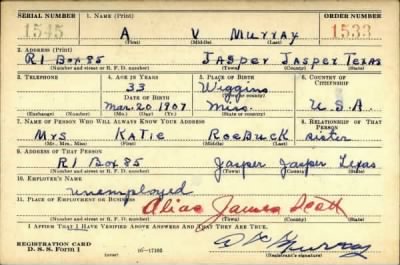 SERIAL NUMBER 1. NAME (Print) ORDER NUMBER
1545 A V MURRAY 1533
(First) (Middle) (Last)
2. ADDRESS (Print)
R1 BOX 85 JASPER JASPER TEXAS
(Number and street or R. F. D. number) (Town) (County) (State)
3. TELEPHONE 4. AGE IN YEARS 5. PLACE OF BIRTH 6. COUNTRY OF CITIZENSHIP
33 Wiggins
DATE OF BIRTH (Town or county)
Mar. 20 1907 Miss. U.S.A.
(Exchange) (Number) (Mo.) (Day) (Yr.) (State or country)
7. NAME OF PERSON WHO WILL ALWAYS KNOW YOUR ADDRESS 8. RELATIONSHIP OF THAT PERSON
Mrs KATIE ROEBUCK sister
(Mr., Mrs., Miss) (First) (Middle) (Last)
9. ADDRESS OF THAT PERSON
R1 Box 85 Jasper Jasper Texas
(Number and street or R. F. D. number) (Town) (County) (State)
10. EMPLOYER'S NAME
unemployed
11. PLACE OF EMPLOYMENT OR BUSINESS
Alias James Scott
(Number and street or R. F. D. number) (Town) (County) (State)
I AFFIRM THAT I HAVE VERIFIED ABOVE ANSWERS AND THAT THEY ARE TRUE.
REGISTRATION CARD
D. S. S. Form 1 16—17105 A V Murray
(Registrant's signature)